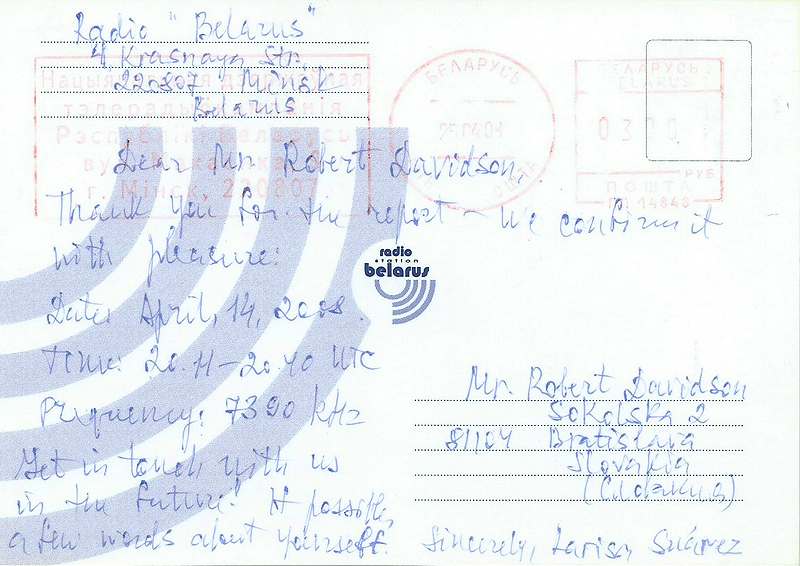 Radio "Belarus"
4 Krasnaya Str.
220807 Minsk
Belarus
Нацыянальная дзяржаўная
тэлерадыёкампанія
Рэспублікі Беларусь
вул. Макаёнка, 9
г. Мінск, 220807
БЕЛАРУСЬ
25.04.08
ПОШТА
БЕЛАРУСЬ
BELARUS
0300
РУБ
ПОШТА
ПП 14848
Dear Mr. Robert Davidson,
Thank you for the report - we confirm it
with pleasure:
Date: April, 14, 2008.
Time: 20.11-20.40 UTC
Frequency: 7390 kHz
Get in touch with us
in the future! If possible,
a few words about yourself.
radio
station
belarus
Mr. Robert Davidson
Sokolska 2
81104 Bratislava
Slovakia
Sincerely, Larisa Suárez